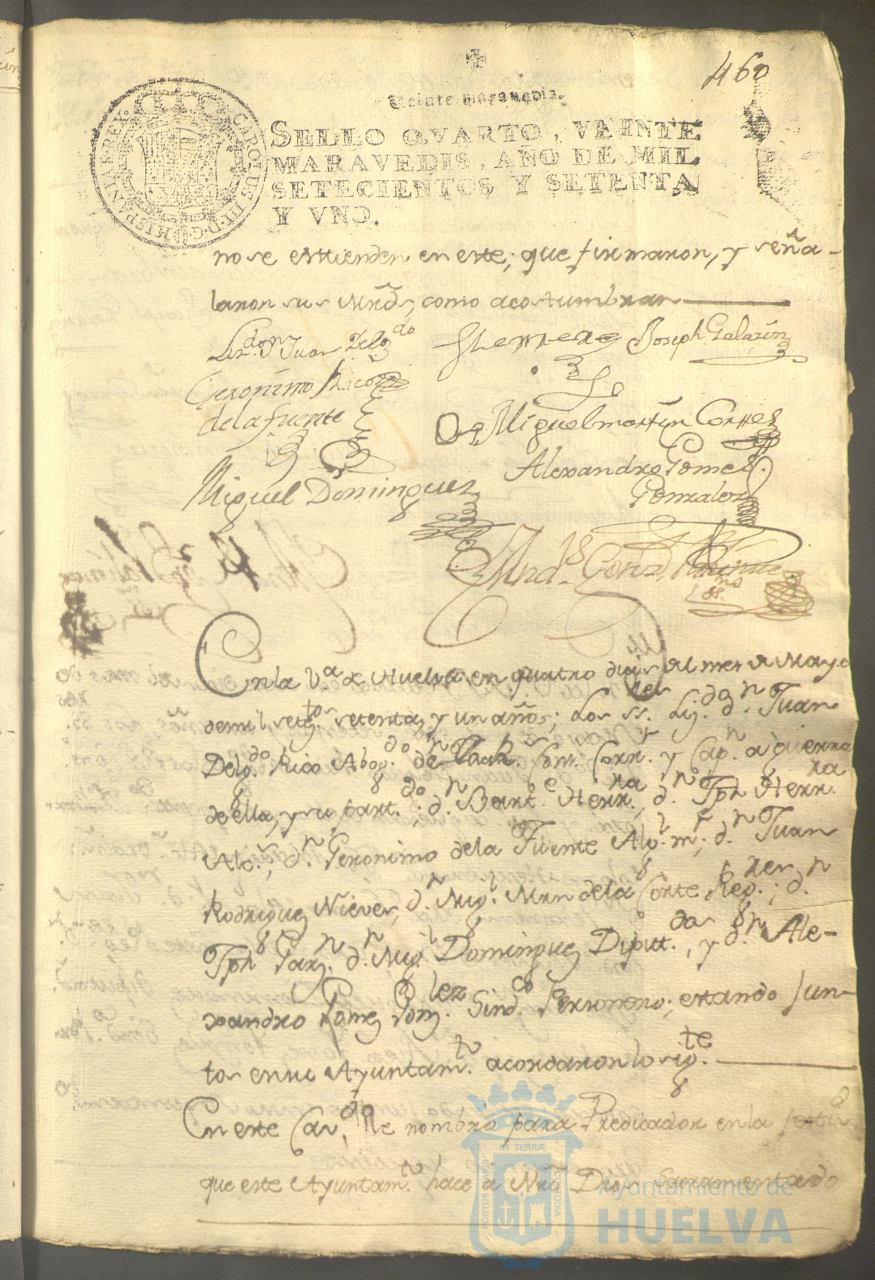 460
Veinte maravedis.
SELLO QVARTO, VEINTE
MARAVEDIS, AÑO DE MIL
SETECIENTOS Y SETENTA
Y VNO.
CAROLUS III D.G. HISPANIAR. REX
no se esttienden en este; que firmaron, y seña-
laron sus Mrds, como acostumbran
Liz.do Dn Juan Delg.do
Joseph Galasin
Geronimo Rico
de la fuente
Miguel martin Cortes
Miguel Dominguez
Alexandro Gomes
Gonzalez
And.s Gonz.
En la V.a de Huelva en quatro dias del mes de Mayo
de mil sete.tos settenta y un años; Los SS. Liz.do d.n Juan
Delg.do Rico Abog.do de los R.s Cons. Corr.r y Cap.n a guerra
de ella, y su part.do; d.n Bart.e Herr.ra, d.n Jph Herr.ra
Alg.l, d.n Geronimo de la Fuente Alg.l m.r; d.n Juan
Rodriguez Nieves, d.n Mig.l Mrn de la Corte Reg.res; d.n
Jph Garz.n d.n Mig.l Dominguez Diputt.dos, y d.n Ale-
xandro Gomez Gonz.lez Sind.co Perssonero; estando Jun-
tos en su Ayuntam.to acordaron lo sig.te
En este Cav.do Se nombro para Predicador en la
que este Ayuntam.to hace a Nro Dios Sacramentado
PORTUS MARIS ET TERRÆ CUSTODIA
Ayuntamiento de
HUELVA